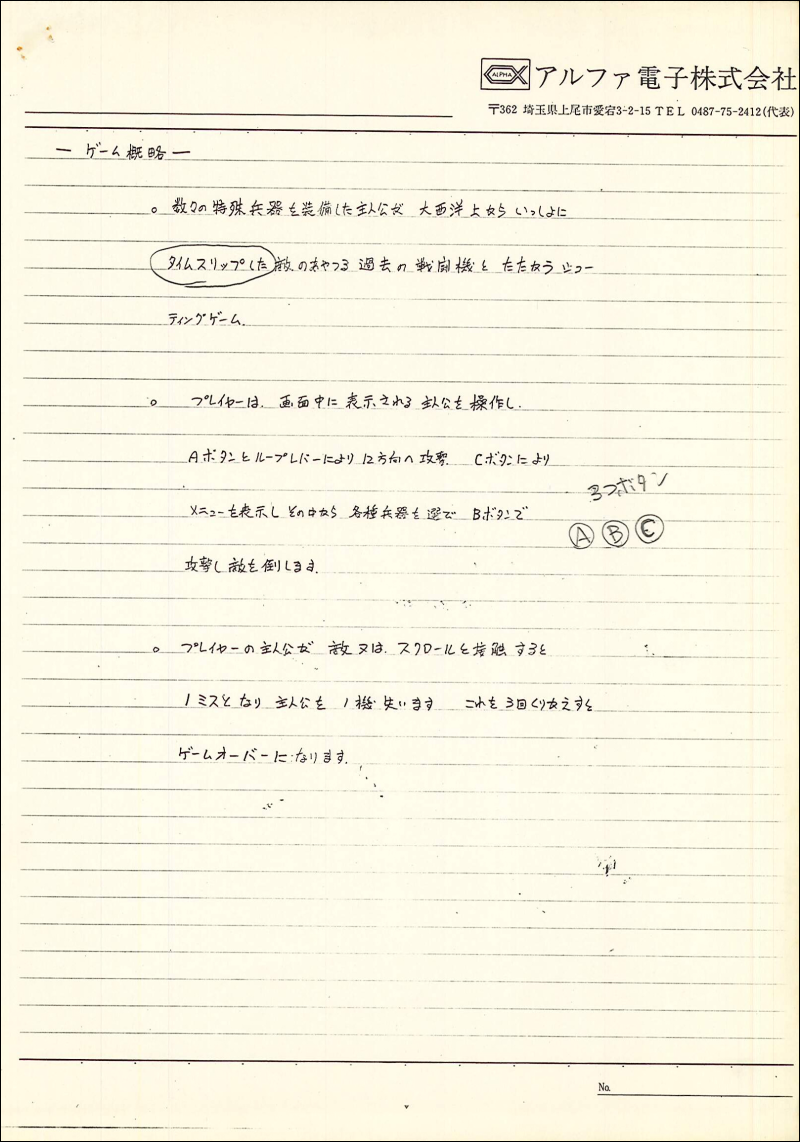 ALPHA アルファ電子株式会社
〒362 埼玉県上尾市愛宕3-2-15 TEL 0487-75-2412(代表)
ー ゲーム概略 ー
。数々の特殊兵器を装備した主人公が 大西洋上から いっしょに
タイムスリップした敵のあやつる 過去の 戦闘機と たたかう シュー
ティングゲーム.
。プレイヤーは、画面中に 表示される 主人公を 操作し.
Aボタンとループレバーにより 12方向へ 攻撃. Cボタンにより
メニューを表示し その中から 各種兵器を 選で Bボタンで
攻撃し 敵を倒します.
3つボタン
A B C
。プレイヤーの主人公が 敵又は、スクロールと接触 すると
1ミスとなり 主人公を 1機 失います これを 3回くりかえすと
ゲームオーバーに なります.
No.